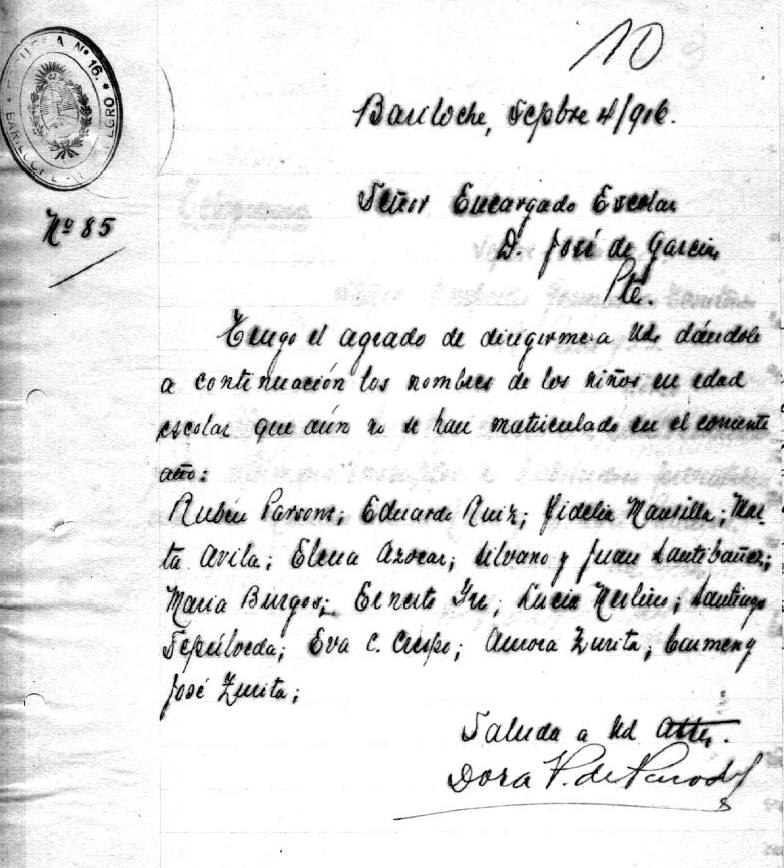 10
ESCUELA Nº 16. * BARILOCHE - RIO NEGRO *
Bariloche, Sepbre 4/916.
Nº 85
Señor Encargado Escolar
D. José de García,
Pte.
Tengo el agrado de dirigirme a Ud. dándole
a continuación los nombres de los niños en edad
escolar que aún no se han matriculado en el corriente
año:
Rubén Parsons; Eduardo Ruiz; Fidelia Mansilla; Mar-
ta Avila; Elena Azocar; Silvano y Juan Santibañez;
María Burgos; Ernesto; Lucía Merlino; Santiago
Sepúlveda; Eva C. Crespo; Aurora Zurita; Carmen y
José Zurita;
Saluda a Ud Atte.
Dora V. de